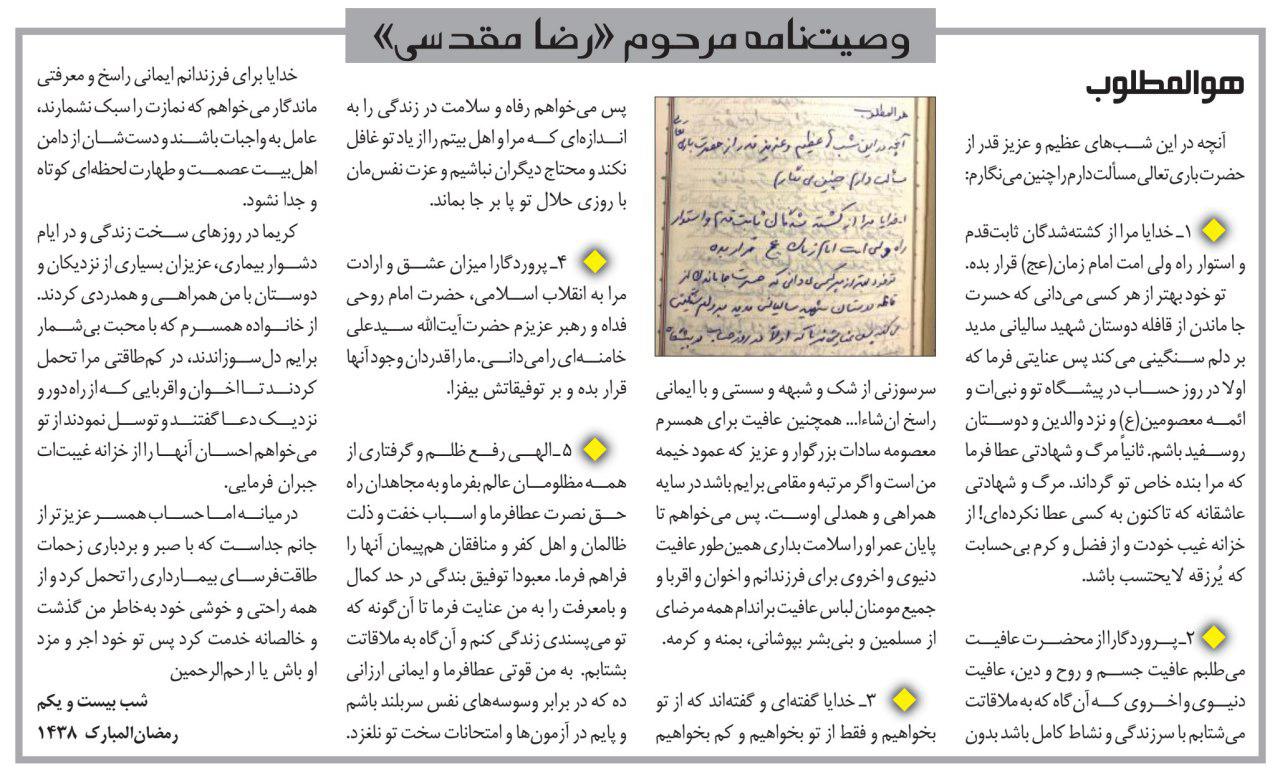 وصیت‌نامه مرحوم «رضا مقدسی»
هوالمطلوب
آنچه در این شب‌های عظیم و عزیز قدر از
حضرت باری تعالی مسألت دارم را چنین می‌نگارم:
۱ـ خدایا مرا از کشته‌شدگان ثابت‌قدم
و استوار راه ولی امت امام زمان(عج) قرار بده.
تو خود بهتر از هر کسی می‌دانی که حسرت
جا ماندن از قافله دوستان شهید سالیانی مدید
بر دلم سنگینی می‌کند پس عنایتی فرما که
اولا در روز حساب در پیشگاه تو و نبی‌ات و
ائمه معصومین(ع) و نزد والدین و دوستان
روسفید باشم. ثانیاً مرگ و شهادتی عطا فرما
که مرا بنده خاص تو گرداند. مرگ و شهادتی
عاشقانه که تاکنون به کسی عطا نکرده‌ای! از
خزانه غیب خودت و از فضل و کرم بی‌حسابت
که یُرزقه لایحتسب باشد.
۲ـ پروردگارا از محضرت عافیت
می‌طلبم عافیت جسم و روح و دین، عافیت
دنیوی و اخروی که آن گاه که به ملاقاتت
می‌شتابم با سرزندگی و نشاط کامل باشد بدون
هوالمطلوب
آنچه در این شب‌های عظیم و عزیز قدر از حضرت باری تعالی
مسألت دارم چنین می‌نگارم
خدایا مرا از کشته شدگان ثابت قدم و استوار
راه ولی امت امام زمان عج قرار بده
تو خود بهتر از هر کسی می‌دانی که حسرت جا ماندن از
قافله دوستان شهید سالیانی مدید بر دلم سنگینی
می‌کند پس عنایتی فرما که اولا در روز حساب در پیشگاه
سرسوزنی از شک و شبهه و سستی و با ایمانی
راسخ ان‌شاءا... همچنین عافیت برای همسرم
معصومه سادات بزرگوار و عزیز که عمود خیمه
من است و اگر مرتبه و مقامی برایم باشد در سایه
همراهی و همدلی اوست. پس می‌خواهم تا
پایان عمر او را سلامت بداری همین‌طور عافیت
دنیوی و اخروی برای فرزندانم و اخوان و اقربا و
جمیع مومنان لباس عافیت بر اندام همه مرضای
از مسلمین و بنی‌بشر بپوشانی، بمنه و کرمه.
۳ـ خدایا گفته‌ای و گفته‌اند که از تو
بخواهیم و فقط از تو بخواهیم و کم بخواهیم
پس می‌خواهم رفاه و سلامت در زندگی را به
اندازه‌ای که مرا و اهل بیتم را از یاد تو غافل
نکند و محتاج دیگران نباشیم و عزت نفس‌مان
با روزی حلال تو پا بر جا بماند.
۴ـ پروردگارا میزان عشق و ارادت
مرا به انقلاب اسلامی، حضرت امام روحی
فداه و رهبر عزیزم حضرت‌آیت‌الله سیدعلی
خامنه‌ای را می‌دانی. ما را قدردان وجود آنها
قرار بده و بر توفیقاتش بیفزا.
۵ـ الهی رفع ظلم و گرفتاری از
همه مظلومان عالم بفرما و به مجاهدان راه
حق نصرت عطا فرما و اسباب خفت و ذلت
ظالمان و اهل کفر و منافقان هم‌پیمان آنها را
فراهم فرما. معبودا توفیق بندگی در حد کمال
و بامعرفت را به من عنایت فرما تا آن گونه که
تو می‌پسندی زندگی کنم و آن‌گاه به ملاقاتت
بشتابم. به من قوتی عطا فرما و ایمانی ارزانی
ده که در برابر وسوسه‌های نفس سربلند باشم
و پایم در آزمون‌ها و امتحانات سخت تو نلغزد.
خدایا برای فرزندانم ایمانی راسخ و معرفتی
ماندگار می‌خواهم که نمازت را سبک نشمارند،
عامل به واجبات باشند و دست‌شان از دامن
اهل‌بیت عصمت و طهارت لحظه‌ای کوتاه
و جدا نشود.
کریما در روزهای سخت زندگی و در ایام
دشوار بیماری، عزیزان بسیاری از نزدیکان و
دوستان با من همراهی و همدردی کردند.
از خانواده همسرم که با محبت بی‌شمار
برایم دل سوزاندند، در کم‌طاقتی مرا تحمل
کردند تا اخوان و اقربایی که از راه دور و
نزدیک دعا گفتند و توسل نمودند از تو
می‌خواهم احسان آنها را از خزانه غیبت‌ات
جبران فرمایی.
در میانه اما حساب همسر عزیزتر از
جانم جداست که با صبر و بردباری زحمات
طاقت‌فرسای بیمارداری را تحمل کرد و از
همه راحتی و خوشی خود به‌خاطر من گذشت
و خالصانه خدمت کرد پس تو خود اجر و مزد
او باش یا ارحم‌الرحمین
شب بیست و یکم
رمضان‌المبارک ۱۴۳۸